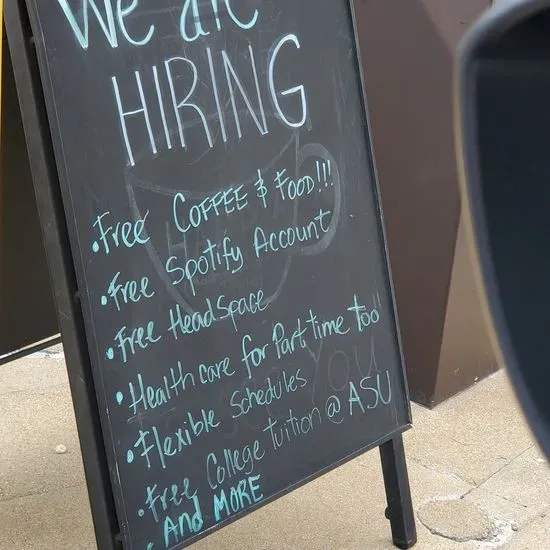 We are
HIRING
• Free COFFEE & FOOD!!!
• Free Spotify Account
• Free HeadSpace
• Health care for Part time too
• Flexible Schedules
• Free College tuition @ ASU
• And MORE